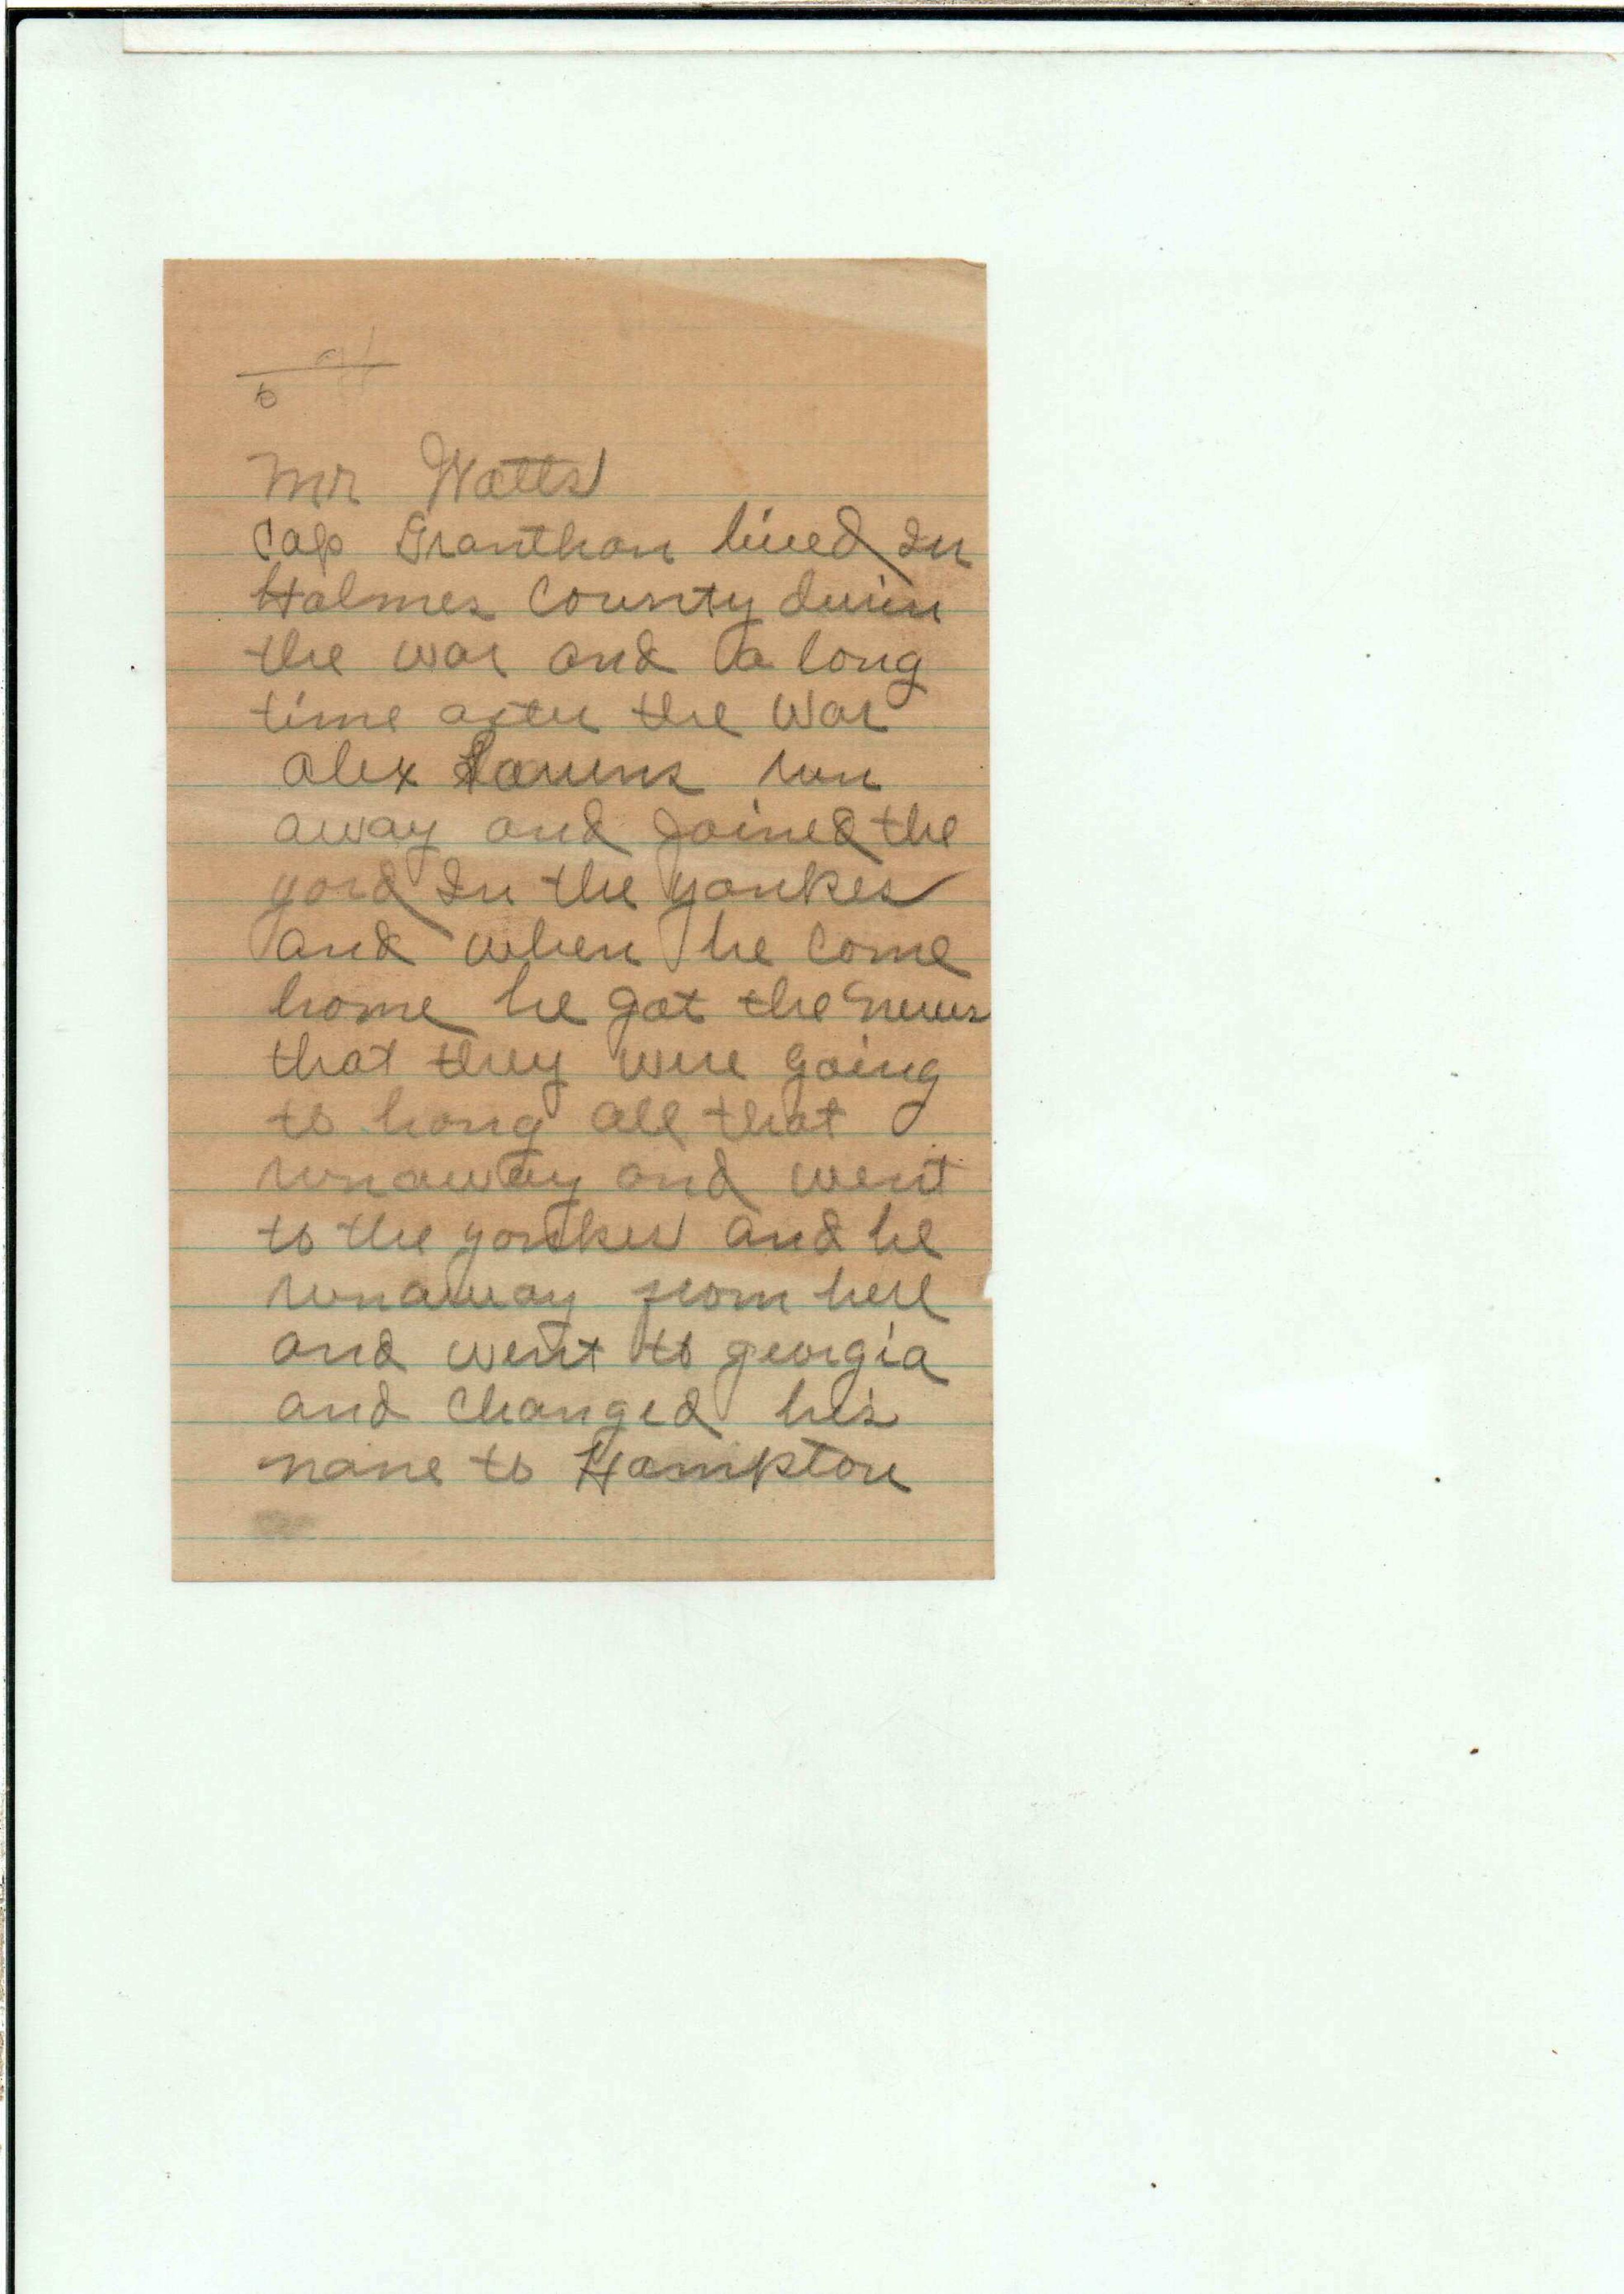 Mr Watts
Cap Granthan lived In
Holmes County durin
the war and a long
time after the War
alex run
away and Joined the
yard In the yankes
and when he come
home he got the news
that they were going
to hang all that
runaway and went
to the yankes and he
runaway from here
and went to georgia
and changed his
name to Hampton